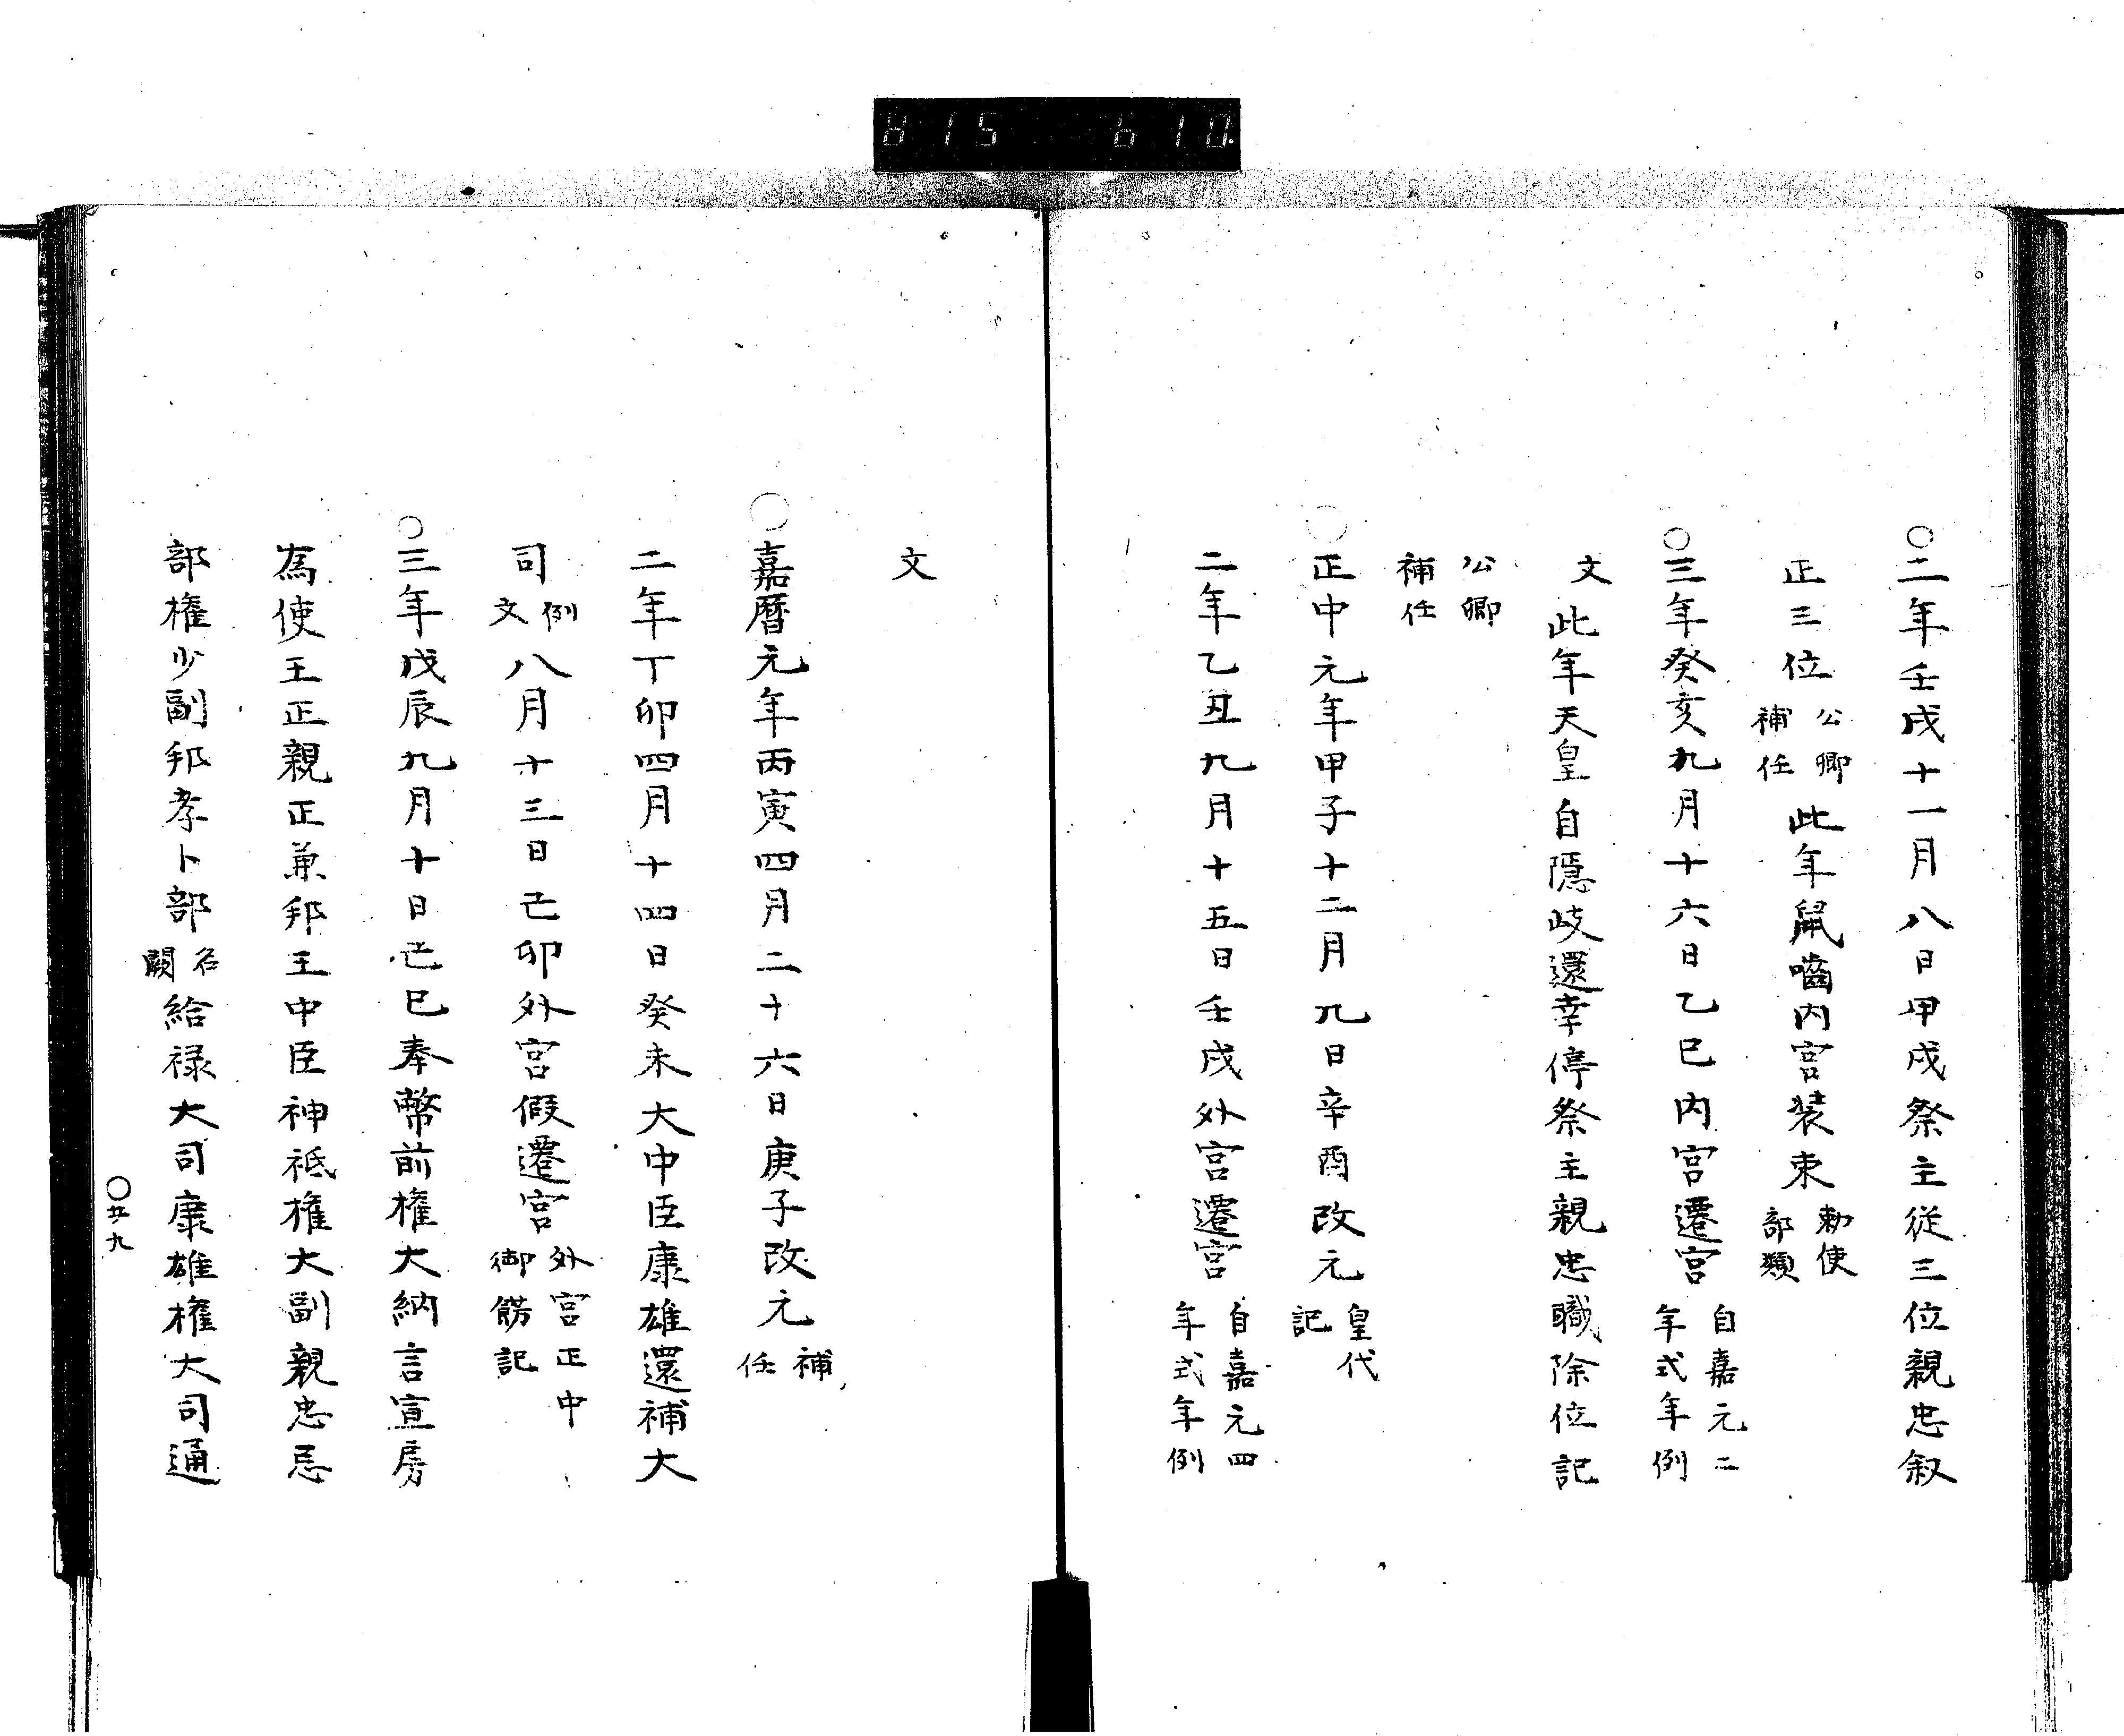 815 610
○二年壬戌十一月八日甲戌祭主従三位親忠叙
正三位 公卿補任 此年鼠嚙内宮装束 勅使部類
○三年癸亥九月十六日乙巳内宮遷宮 自嘉元二年式年例
文 此年天皇自隠岐還幸停祭主親忠職除位記
公卿補任
○正中元年甲子十二月九日辛酉改元 皇代記
二年乙丑九月十五日壬戌外宮遷宮 自嘉元四年式年例
文
○嘉暦元年丙寅四月二十六日庚子改元 補任
二年丁卯四月十四日癸未大中臣康雄還補大
司 例文 八月十三日己卯外宮假遷宮 外宮正中御餝記
○三年戊辰九月十日己巳奉幣前権大納言宣房
為使王正親正兼邦王中臣神祇権大副親忠忌
部権少副邦孝卜部 名闕 給禄大司康雄権大司通
○五十九